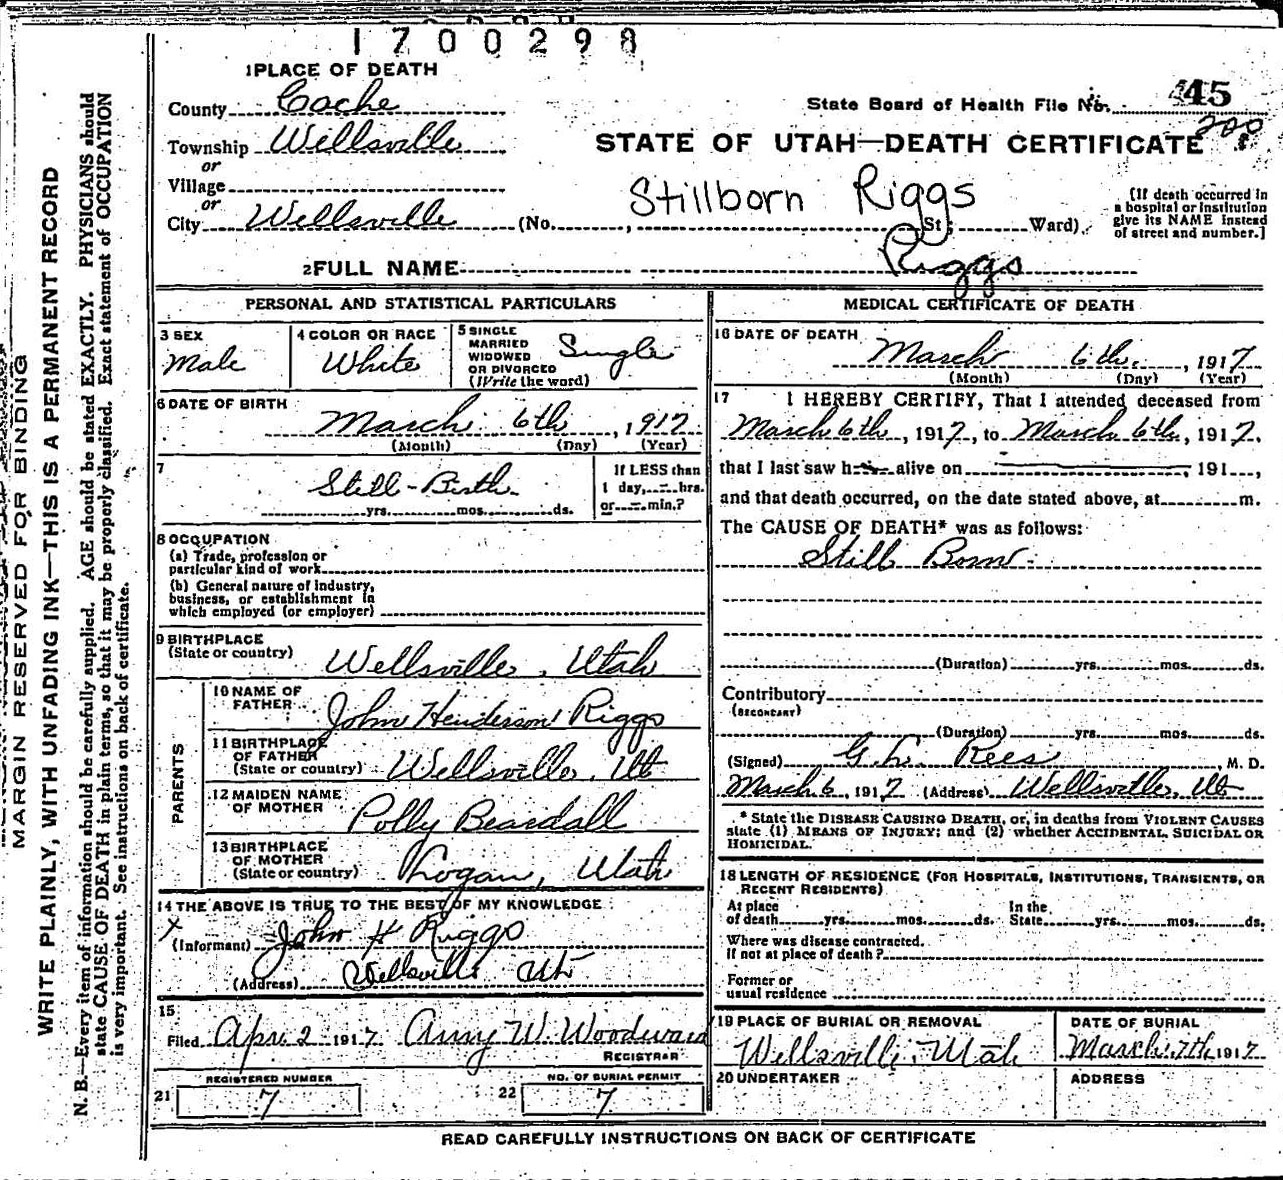 1700298
1 PLACE OF DEATH
County Cache
Township Wellsville
or
Village
or
City Wellsville (No. , St; Ward)
State Board of Health File No. 45
200
STATE OF UTAH—DEATH CERTIFICATE
Stillborn Riggs
(If death occurred in
a hospital or institution
give its NAME instead
of street and number.]
2 FULL NAME Riggs
PERSONAL AND STATISTICAL PARTICULARS
3 SEX
Male
4 COLOR OR RACE
White
5 SINGLE
MARRIED
WIDOWED
OR DIVORCED
(Write the word)
Single
6 DATE OF BIRTH
March 6th, 1917
(Month) (Day) (Year)
7
Still-Birth
yrs. mos. ds.
If LESS than
1 day, - hrs.
or - min.?
8 OCCUPATION
(a) Trade, profession or
particular kind of work
(b) General nature of industry,
business, or establishment in
which employed (or employer)
9 BIRTHPLACE
(State or country) Wellsville, Utah
PARENTS
10 NAME OF
FATHER John Henderson Riggs
11 BIRTHPLACE
OF FATHER
(State or country) Wellsville, Ut
12 MAIDEN NAME
OF MOTHER Polly Beardall
13 BIRTHPLACE
OF MOTHER
(State or country) Logan, Utah
14 THE ABOVE IS TRUE TO THE BEST OF MY KNOWLEDGE
X
(Informant) John H Riggs
(Address) Wellsville Ut
15
Filed Apr. 2 1917 Amy W. Woodward
REGISTRAR
REGISTERED NUMBER
21 7
NO. OF BURIAL PERMIT
22 7
MEDICAL CERTIFICATE OF DEATH
16 DATE OF DEATH
March 6th, 1917
(Month) (Day) (Year)
17 I HEREBY CERTIFY, That I attended deceased from
March 6th, 1917, to March 6th, 1917,
that I last saw h alive on , 191 ,
and that death occurred, on the date stated above, at m.
The CAUSE OF DEATH* was as follows:
Still Born
(Duration) yrs. mos. ds.
Contributory
(SECONDARY)
(Duration) yrs. mos. ds.
(Signed) G. L. Rees, M. D.
March 6, 1917 (Address) Wellsville, Ut
* State the DISEASE CAUSING DEATH, or, in deaths from VIOLENT CAUSES
state (1) MEANS OF INJURY; and (2) whether ACCIDENTAL, SUICIDAL OR
HOMICIDAL.
18 LENGTH OF RESIDENCE (FOR HOSPITALS, INSTITUTIONS, TRANSIENTS, OR
RECENT RESIDENTS)
At place
of death yrs. mos. ds.
In the
State yrs. mos. ds.
Where was disease contracted.
If not at place of death?
Former or
usual residence
19 PLACE OF BURIAL OR REMOVAL
Wellsville, Utah
DATE OF BURIAL
March, 7th, 1917
20 UNDERTAKER
ADDRESS
READ CAREFULLY INSTRUCTIONS ON BACK OF CERTIFICATE
MARGIN RESERVED FOR BINDING
WRITE PLAINLY, WITH UNFADING INK—THIS IS A PERMANENT RECORD
N. B.—Every item of information should be carefully supplied. AGE should be stated EXACTLY. PHYSICIANS should
state CAUSE OF DEATH in plain terms, so that it may be properly classified. Exact statement of OCCUPATION
is very important. See instructions on back of certificate.